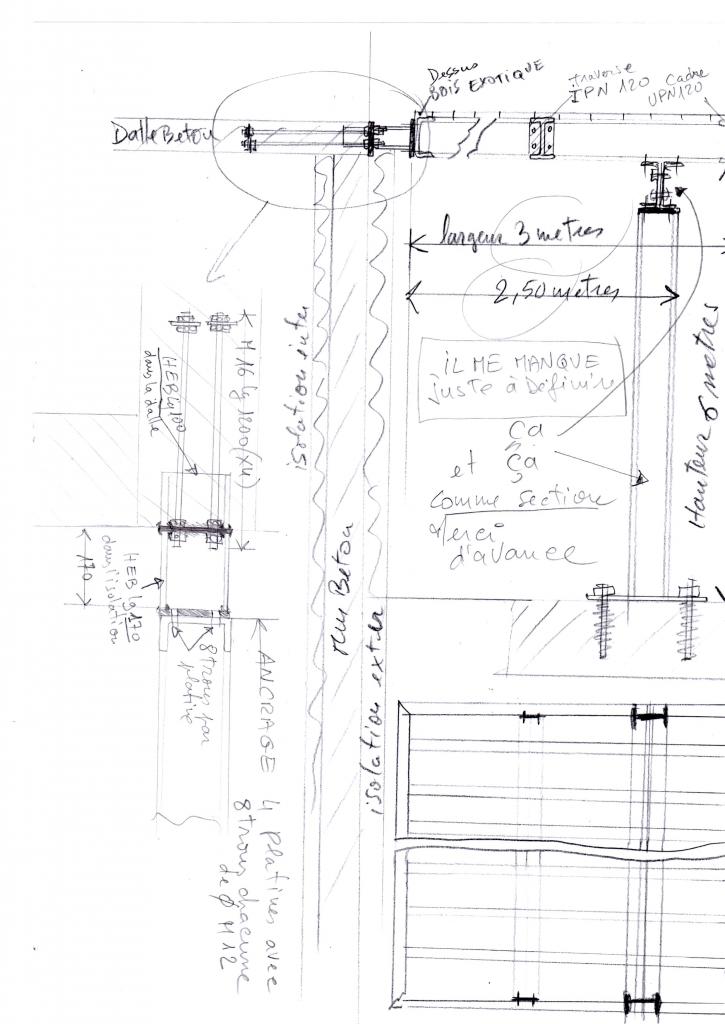 Dessus
BOIS EXOTIQUE
Traverse
IPN 120
Cadre
UPN 120
Dalle Beton
largeur 3 metres
2,50 metres
Hauteur 6 metres
IL ME MANQUE
juste à Définire
Ça
et Ça
comme section
Merci
d'avance
isolation inter
mur Beton
isolation exter
M16 lg 1200 (x4)
HEB lg 100
dans la dalle
170
HEB lg 170
dans l'isolation
8 trous par
platine
ANCRAGE 4 platines avec
8 trous chacune
de Ø M12